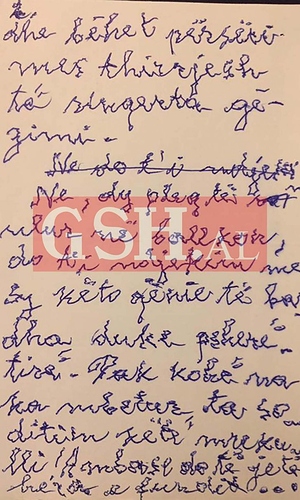 dhe bëhet përsëri
mes thirrjesh
të sinqerta gë-
zimi.
Ne do t'i ndjej
Ne, dy pleq të
ulur në ballkon
do t'i ndjekim me
sy këto qenie të ba
dha duke përsë-
ritë. Pak kohë na
ka mbetur ta so-
ditim këtë mreku-
lli! mbasi do të jetë
hera e fundit...
GSH.AL